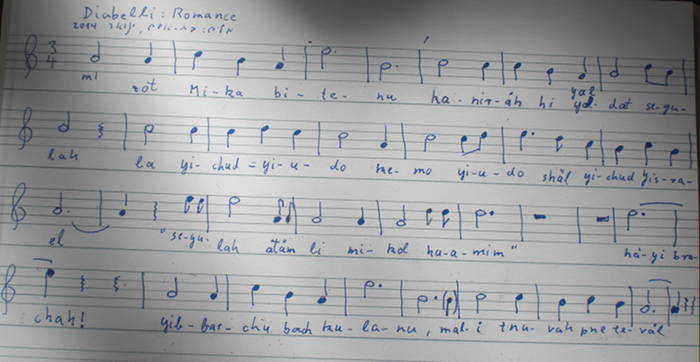 Diabelli : Romance
2014
3/4
mi zot Mi - ka bi - te - nu ha - nir - äh hi yal - dat se - gu -
lah la yi - chud = yi - u - do ke - mo yi - u - do shäl yi - chud Yis - ra -
el "se - gu - lah atäm li mi - kol ha - a - mim" hä - yi bra -
chah! yit - bar - chu bach ku - la - nu, mal - i tnu - vah pne te - väl